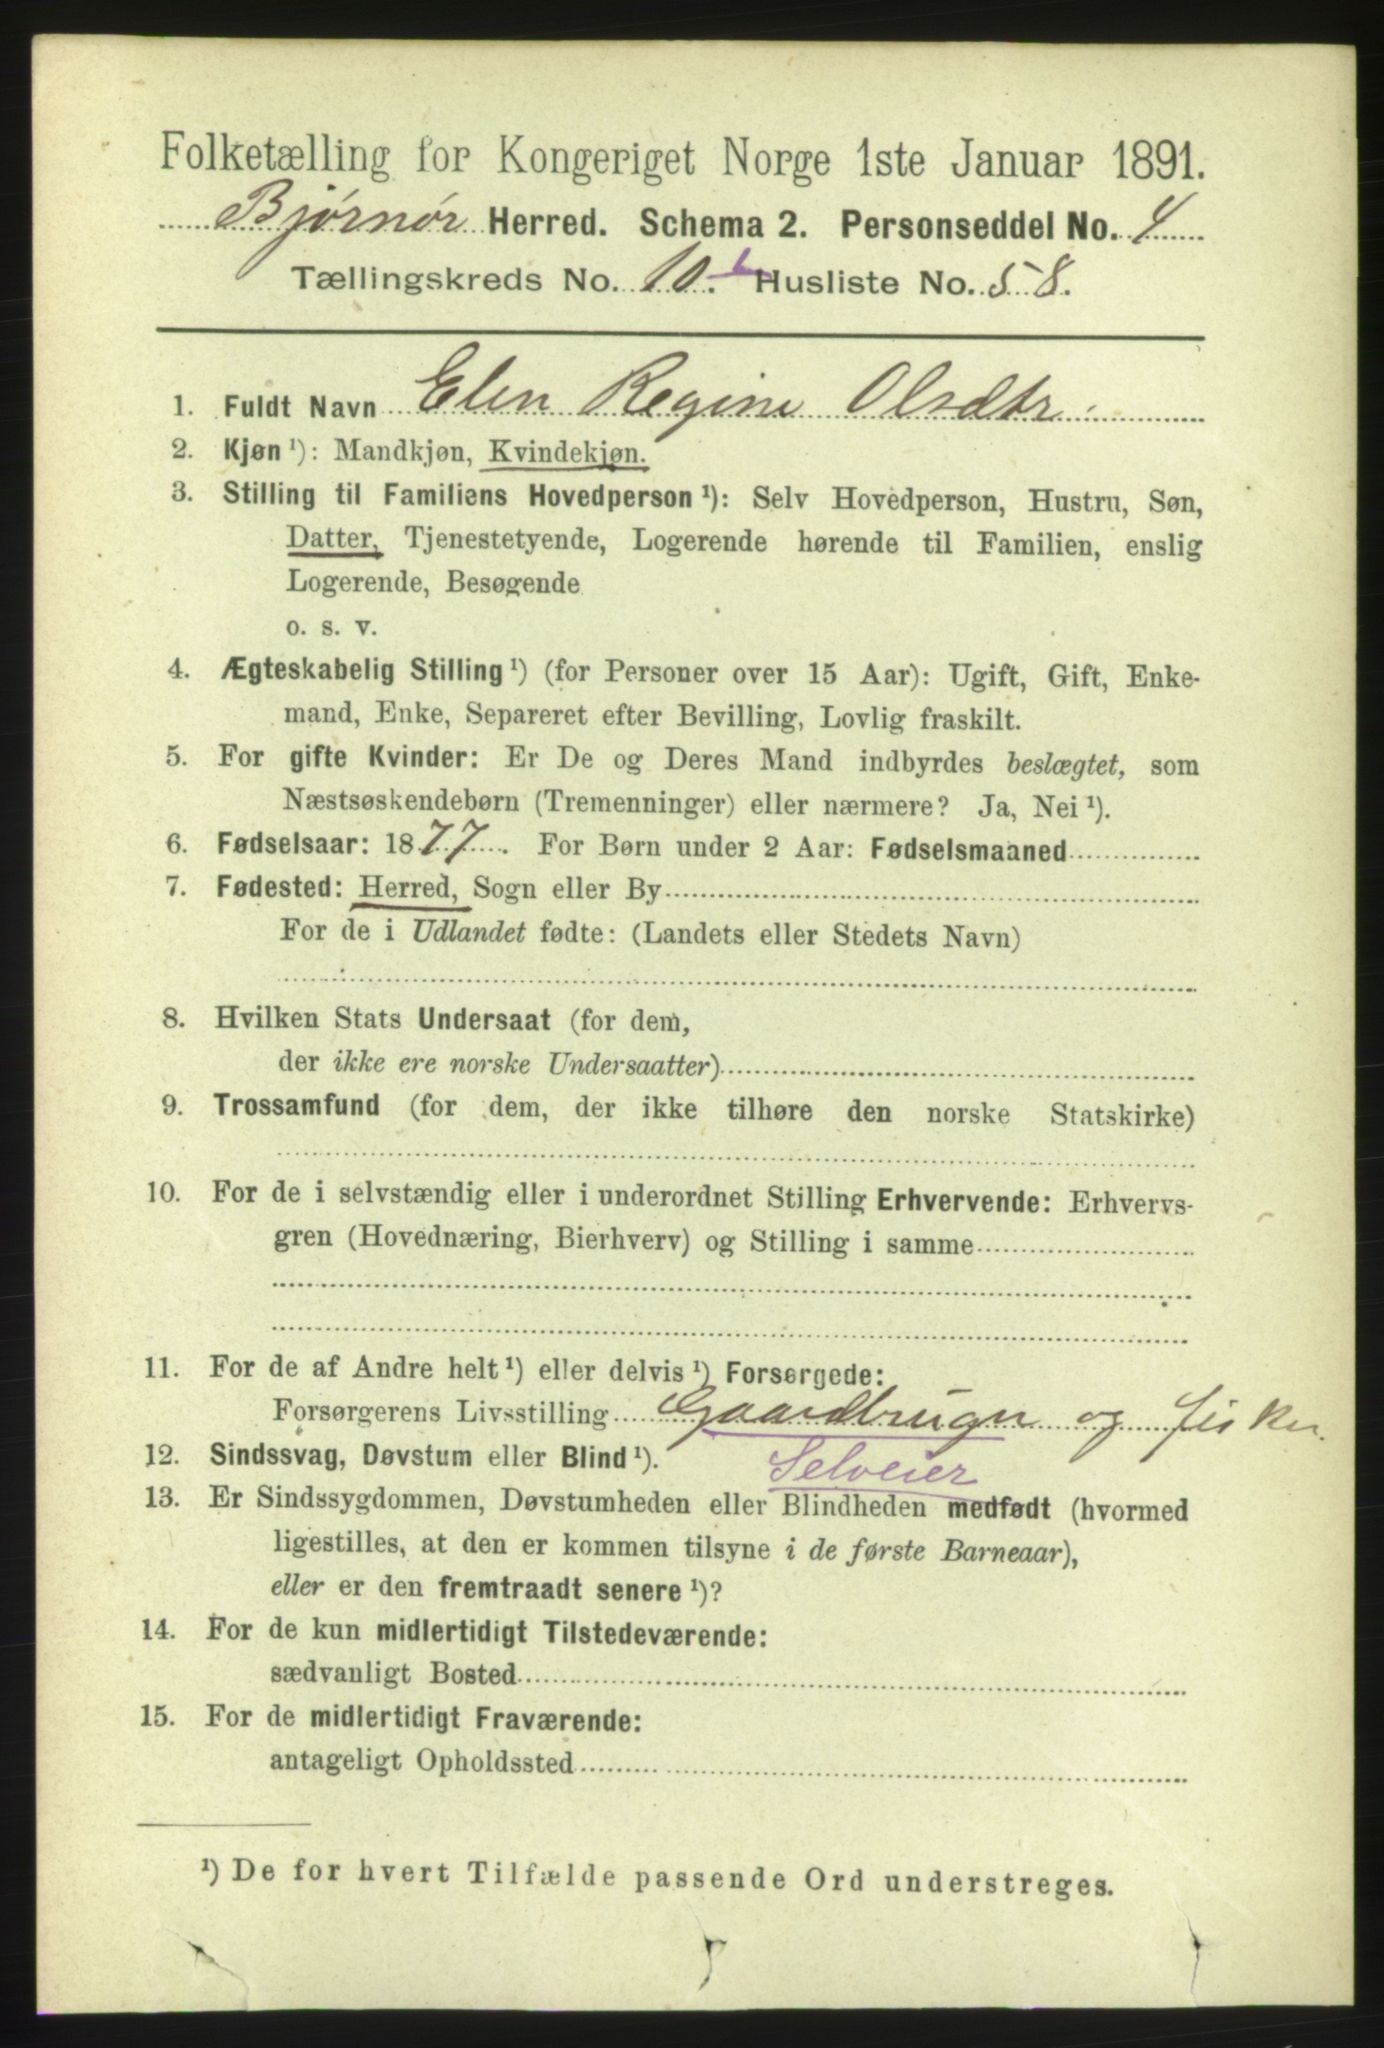 Folketælling for Kongeriget Norge 1ste Januar 1891.
Bjørnør Herred. Schema 2. Personseddel No. 4
Tællingskreds No. 10.b Husliste No. 58.
1. Fuldt Navn Elen Regine Olsdtr.
2. Kjøn ¹): Mandkjøn, Kvindekjøn.
3. Stilling til Familiens Hovedperson ¹): Selv Hovedperson, Hustru, Søn,
Datter, Tjenestetyende, Logerende hørende til Familien, enslig
Logerende, Besøgende
o. s. v.
4. Ægteskabelig Stilling ¹) (for Personer over 15 Aar): Ugift, Gift, Enke-
mand, Enke, Separeret efter Bevilling, Lovlig fraskilt.
5. For gifte Kvinder: Er De og Deres Mand indbyrdes beslægtet, som
Næstsøskendebørn (Tremenninger) eller nærmere? Ja, Nei ¹).
6. Fødselsaar: 1877. For Børn under 2 Aar: Fødselsmaaned
7. Fødested: Herred, Sogn eller By
For de i Udlandet fødte: (Landets eller Stedets Navn)
8. Hvilken Stats Undersaat (for dem,
der ikke ere norske Undersaatter)
9. Trossamfund (for dem, der ikke tilhøre den norske Statskirke)
10. For de i selvstændig eller i underordnet Stilling Erhvervende: Erhvervs-
gren (Hovednæring, Bierhverv) og Stilling i samme
11. For de af Andre helt ¹) eller delvis ¹) Forsørgede:
Forsørgerens Livsstilling Gaardbruger og fisker.
12. Sindssvag, Døvstum eller Blind ¹). Selveier
13. Er Sindssygdommen, Døvstumheden eller Blindheden medfødt (hvormed
ligestilles, at den er kommen tilsyne i de første Barneaar),
eller er den fremtraadt senere ¹)?
14. For de kun midlertidigt Tilstedeværende:
sædvanligt Bosted
15. For de midlertidigt Fraværende:
antageligt Opholdssted
¹) De for hvert Tilfælde passende Ord understreges.